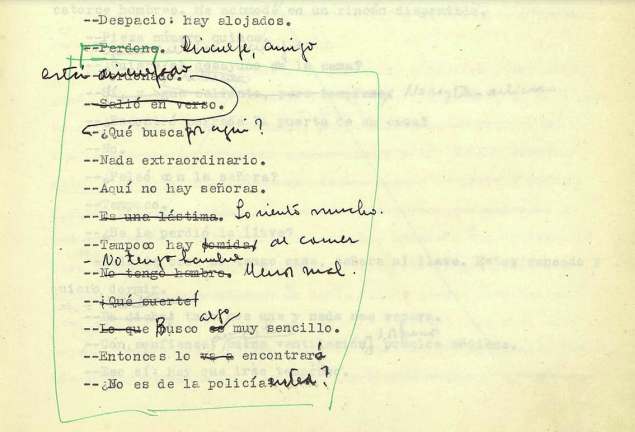 --Despacio: hay alojados.
--Perdone. Disculpe, amigo
--Perdonado.
--Salió en verso.
--¿Qué busca por aquí?
--Nada extraordinario.
--Aquí no hay señoras.
--Es una lástima. Lo siento mucho.
--Tampoco hay comida, de comer
No tengo hambre
--No tengo hambre. Menos mal.
--¡Qué suerte!
--Lo que Busco algo es muy sencillo.
--Entonces lo va a encontrará
--¿No es de la policía usted?